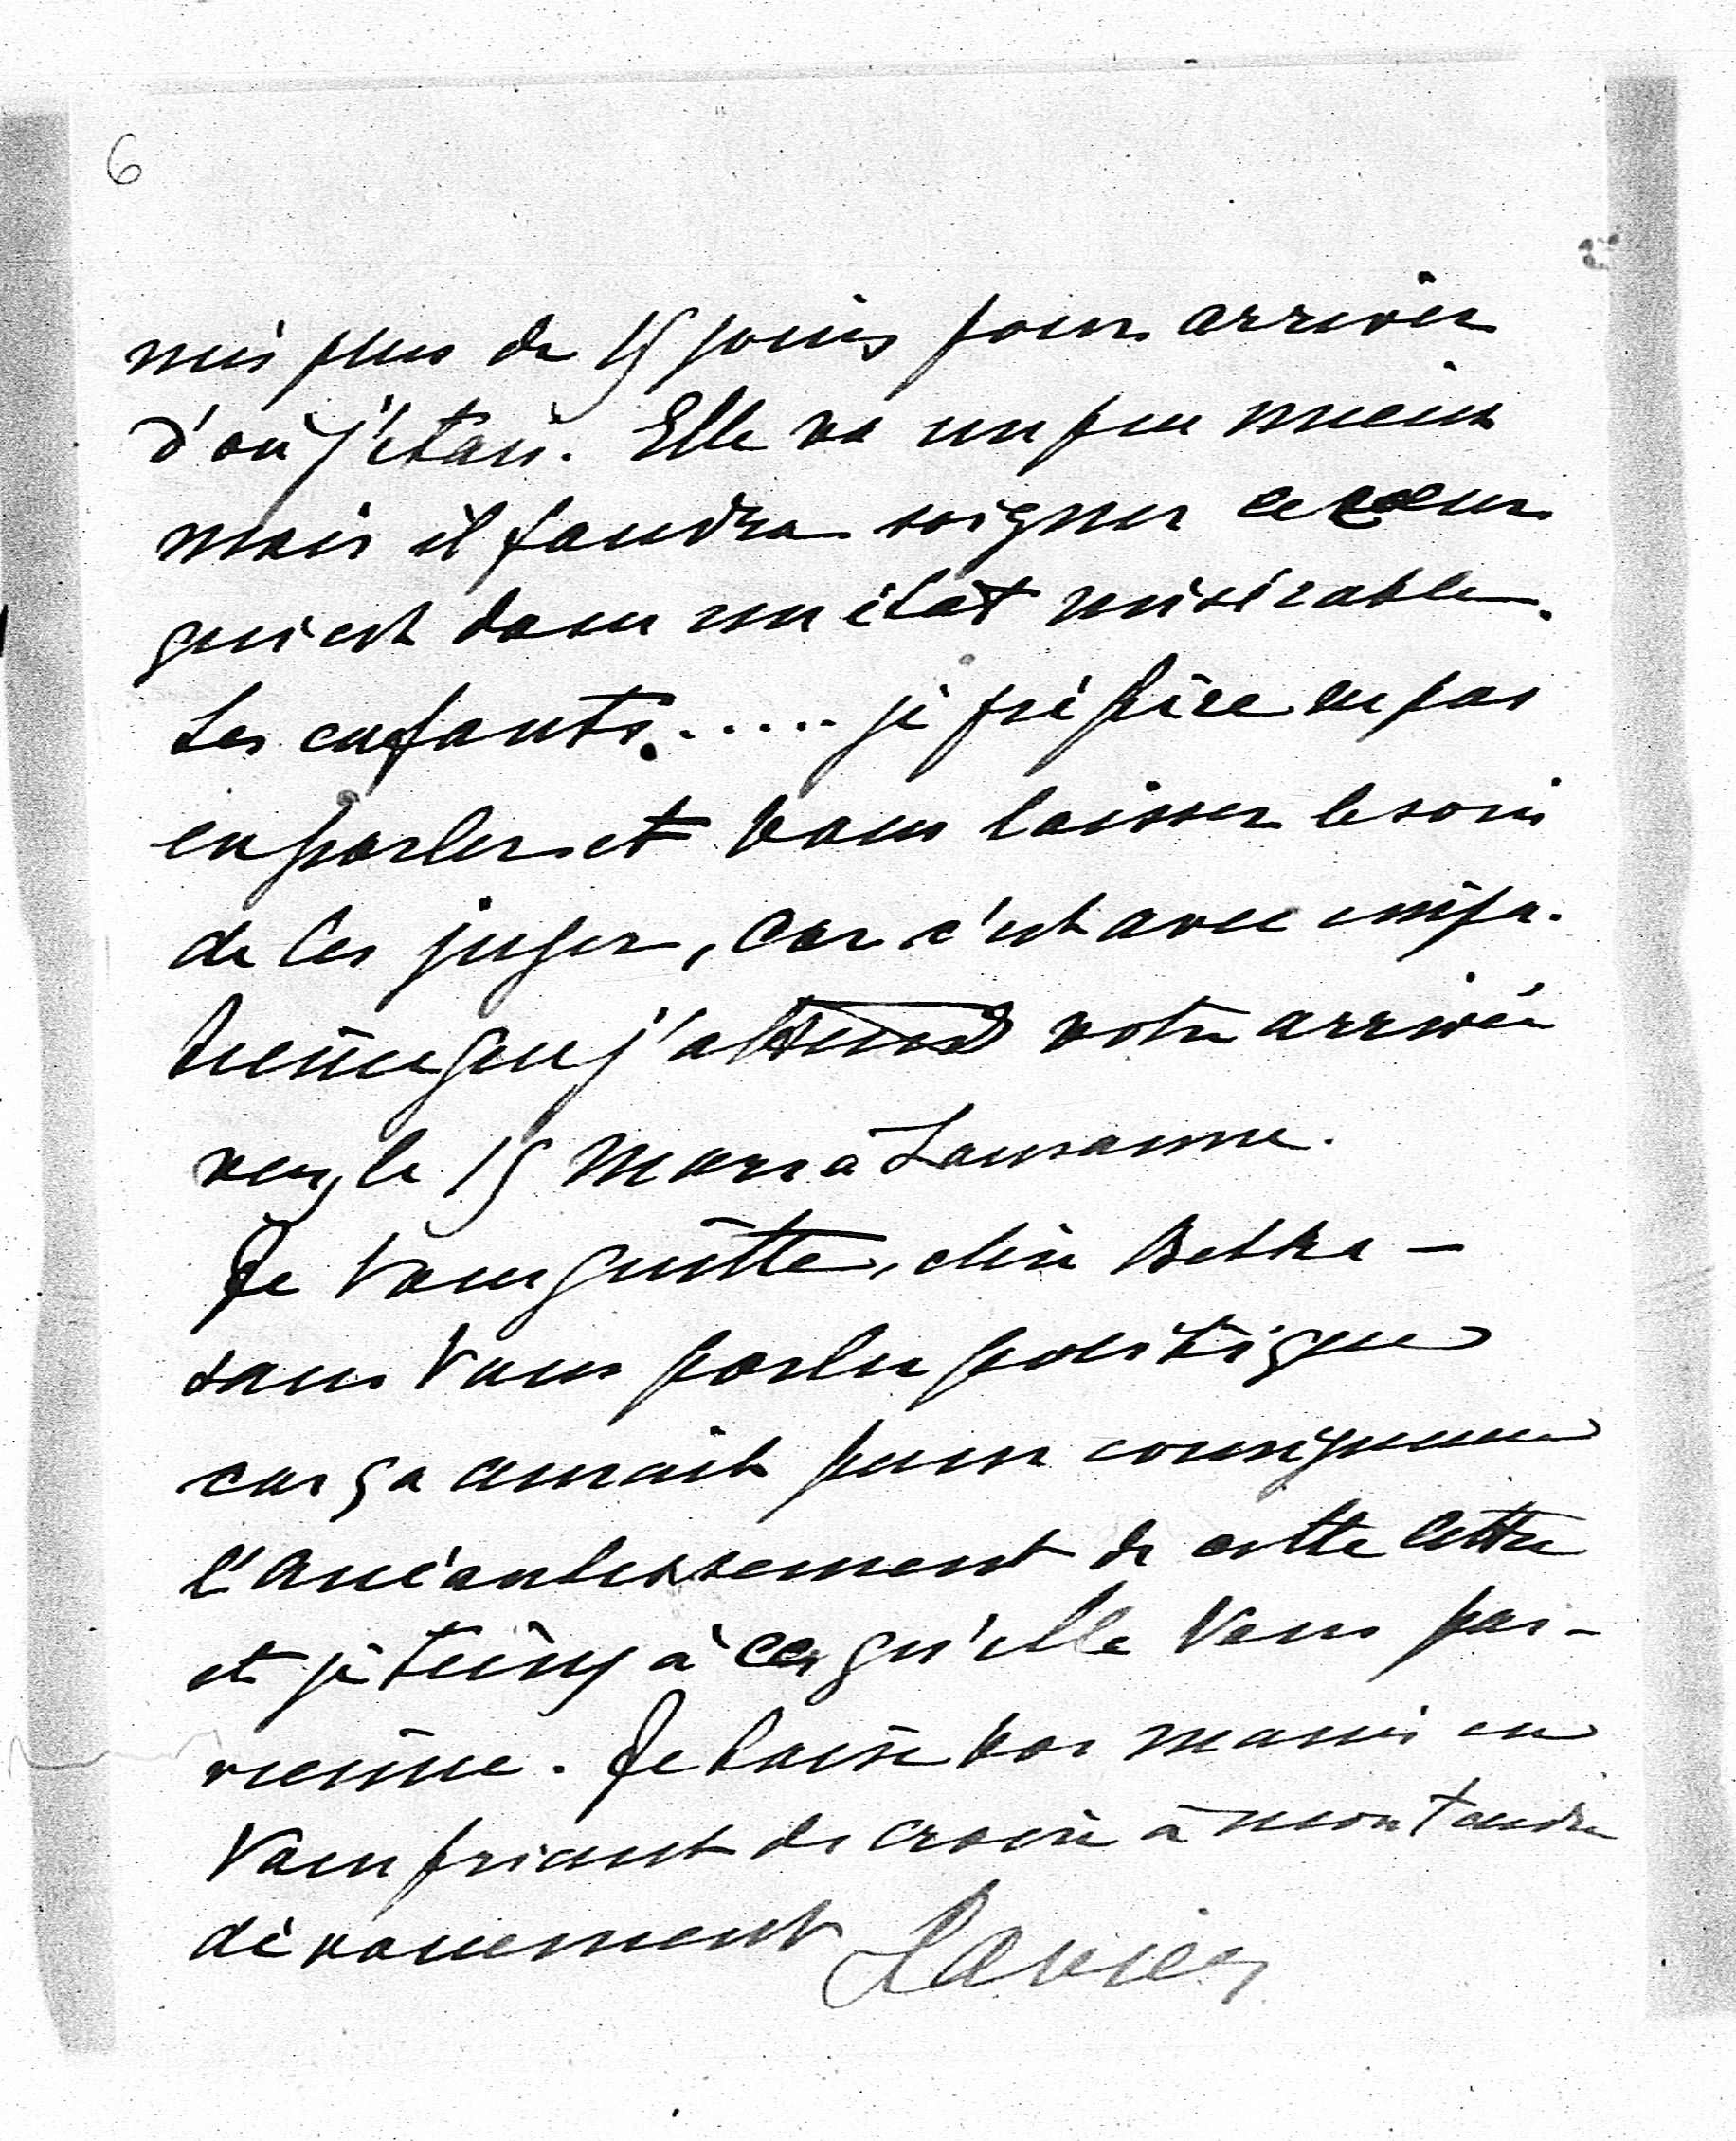 6
mis plus de 15 jours pour arriver
d'où j'étais. Elle va un peu mieux
mais il faudra soigner ce cœur
qui est dans un état misérable.
Les enfants..... je préfère ne pas
en parler et vous laisser le soin
de les juger, car c'est avec impa-
tience que j'attend votre arrivée
vers le 15 Mars à Lausanne.
Je vous quitte, chère Betka -
sans Vous parler politique
car ça aurait pour conséquence
l'anéantissement de cette lettre
et je tiens à ce qu'elle Vous par-
vienne. Je baise vos mains en
Vous priant de croire à mon tendre
dévouement